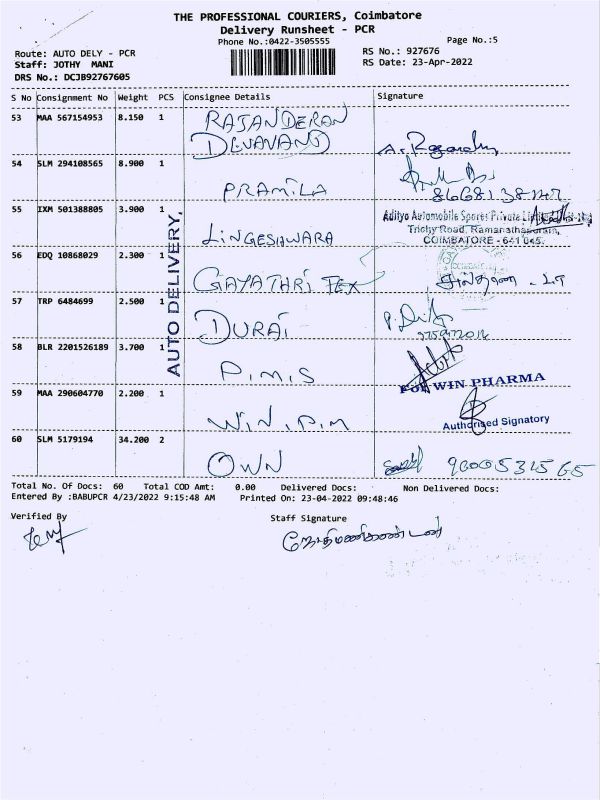 THE PROFESSIONAL COURIERS, Coimbatore
Delivery Runsheet - PCR
Phone No.:0422-3505555
Page No.:5
Route: AUTO DELY - PCR
RS No.: 927676
Staff: JOTHY MANI
RS Date: 23-Apr-2022
DRS No.: DCJB92767605
S No Consignment No Weight PCS Consignee Details Signature
53 MAA 567154953 8.150 1 RAJANDERAN
DEVANAND
54 SLM 294108565 8.900 1 PRAMILA
55 IXM 501388805 3.900 1 LINGESHWARA
Aditya Automobile Spares Private Limited
Trichy Road, Ramanathapuram,
COIMBATORE - 641 045.
56 EDQ 10868029 2.300 1 GAYATHRI TEX
57 TRP 6484699 2.500 1 DURAI
58 BLR 2201526189 3.700 1 P.M.S
FOR WIN PHARMA
59 MAA 290604770 2.200 1 WIN.P.M
Authorised Signatory
60 SLM 5179194 34.200 2 OWN
AUTO DELIVERY,
Total No. Of Docs: 60 Total COD Amt: 0.00 Delivered Docs: Non Delivered Docs:
Entered By :BABUPCR 4/23/2022 9:15:48 AM Printed On: 23-04-2022 09:48:46
Verified By
Staff Signature